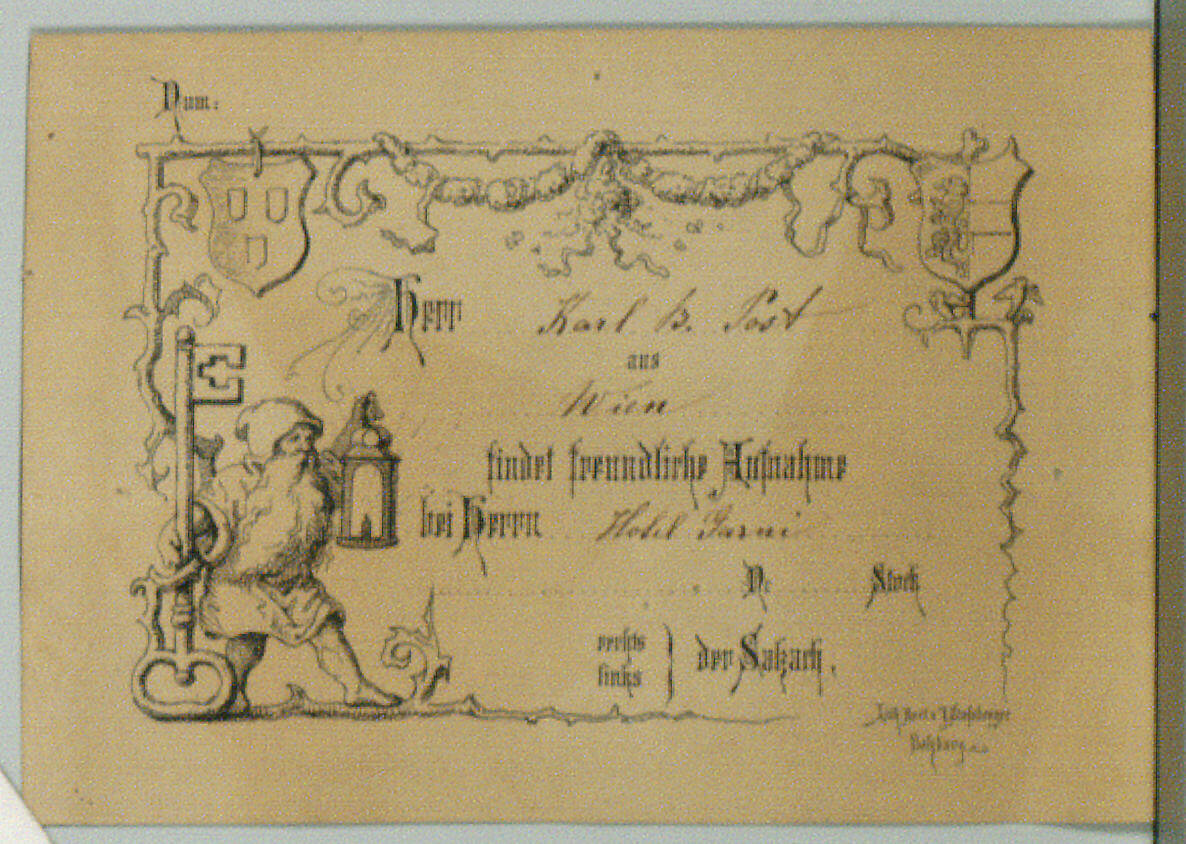 Num:
Herr Karl B. Post
aus
Wien
findet freundliche Aufnahme
bei Herrn Hotel Garni
Nr Stock
rechts
links
der Salzach.
Salzburg